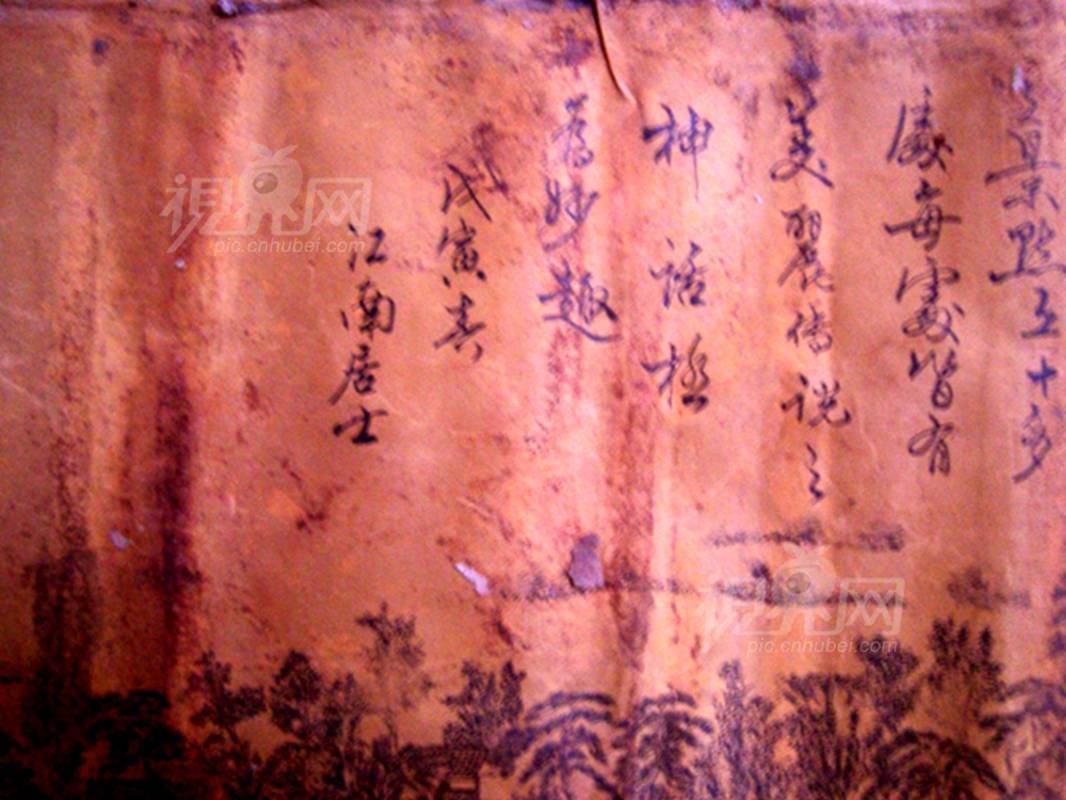 景點五十多
處每處皆有
美麗傳說之
神話極
舊妙趣
戊寅春
江南居士
視界网
pic.cnhubei.com
視界网
pic.cnhubei.com